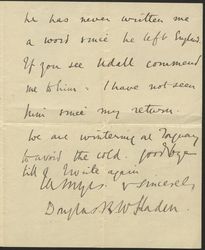 he has never written me
a word since he left England.
If you see Udall commend
me to him. I have not seen
him since my return.
We are wintering at Torquay
to avoid the cold. good bye
till I write again
sincerely
Douglas B W Sladen.